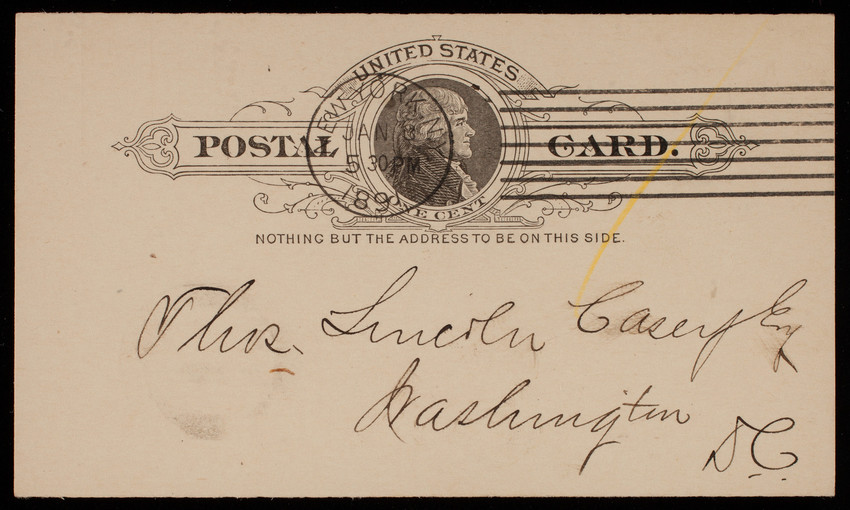 UNITED STATES
POSTAL CARD.
ONE CENT
NEW YORK
JAN
5 30 PM
89
NOTHING BUT THE ADDRESS TO BE ON THIS SIDE.
Thos. Lincoln Casey Esq
Washington
D.C.